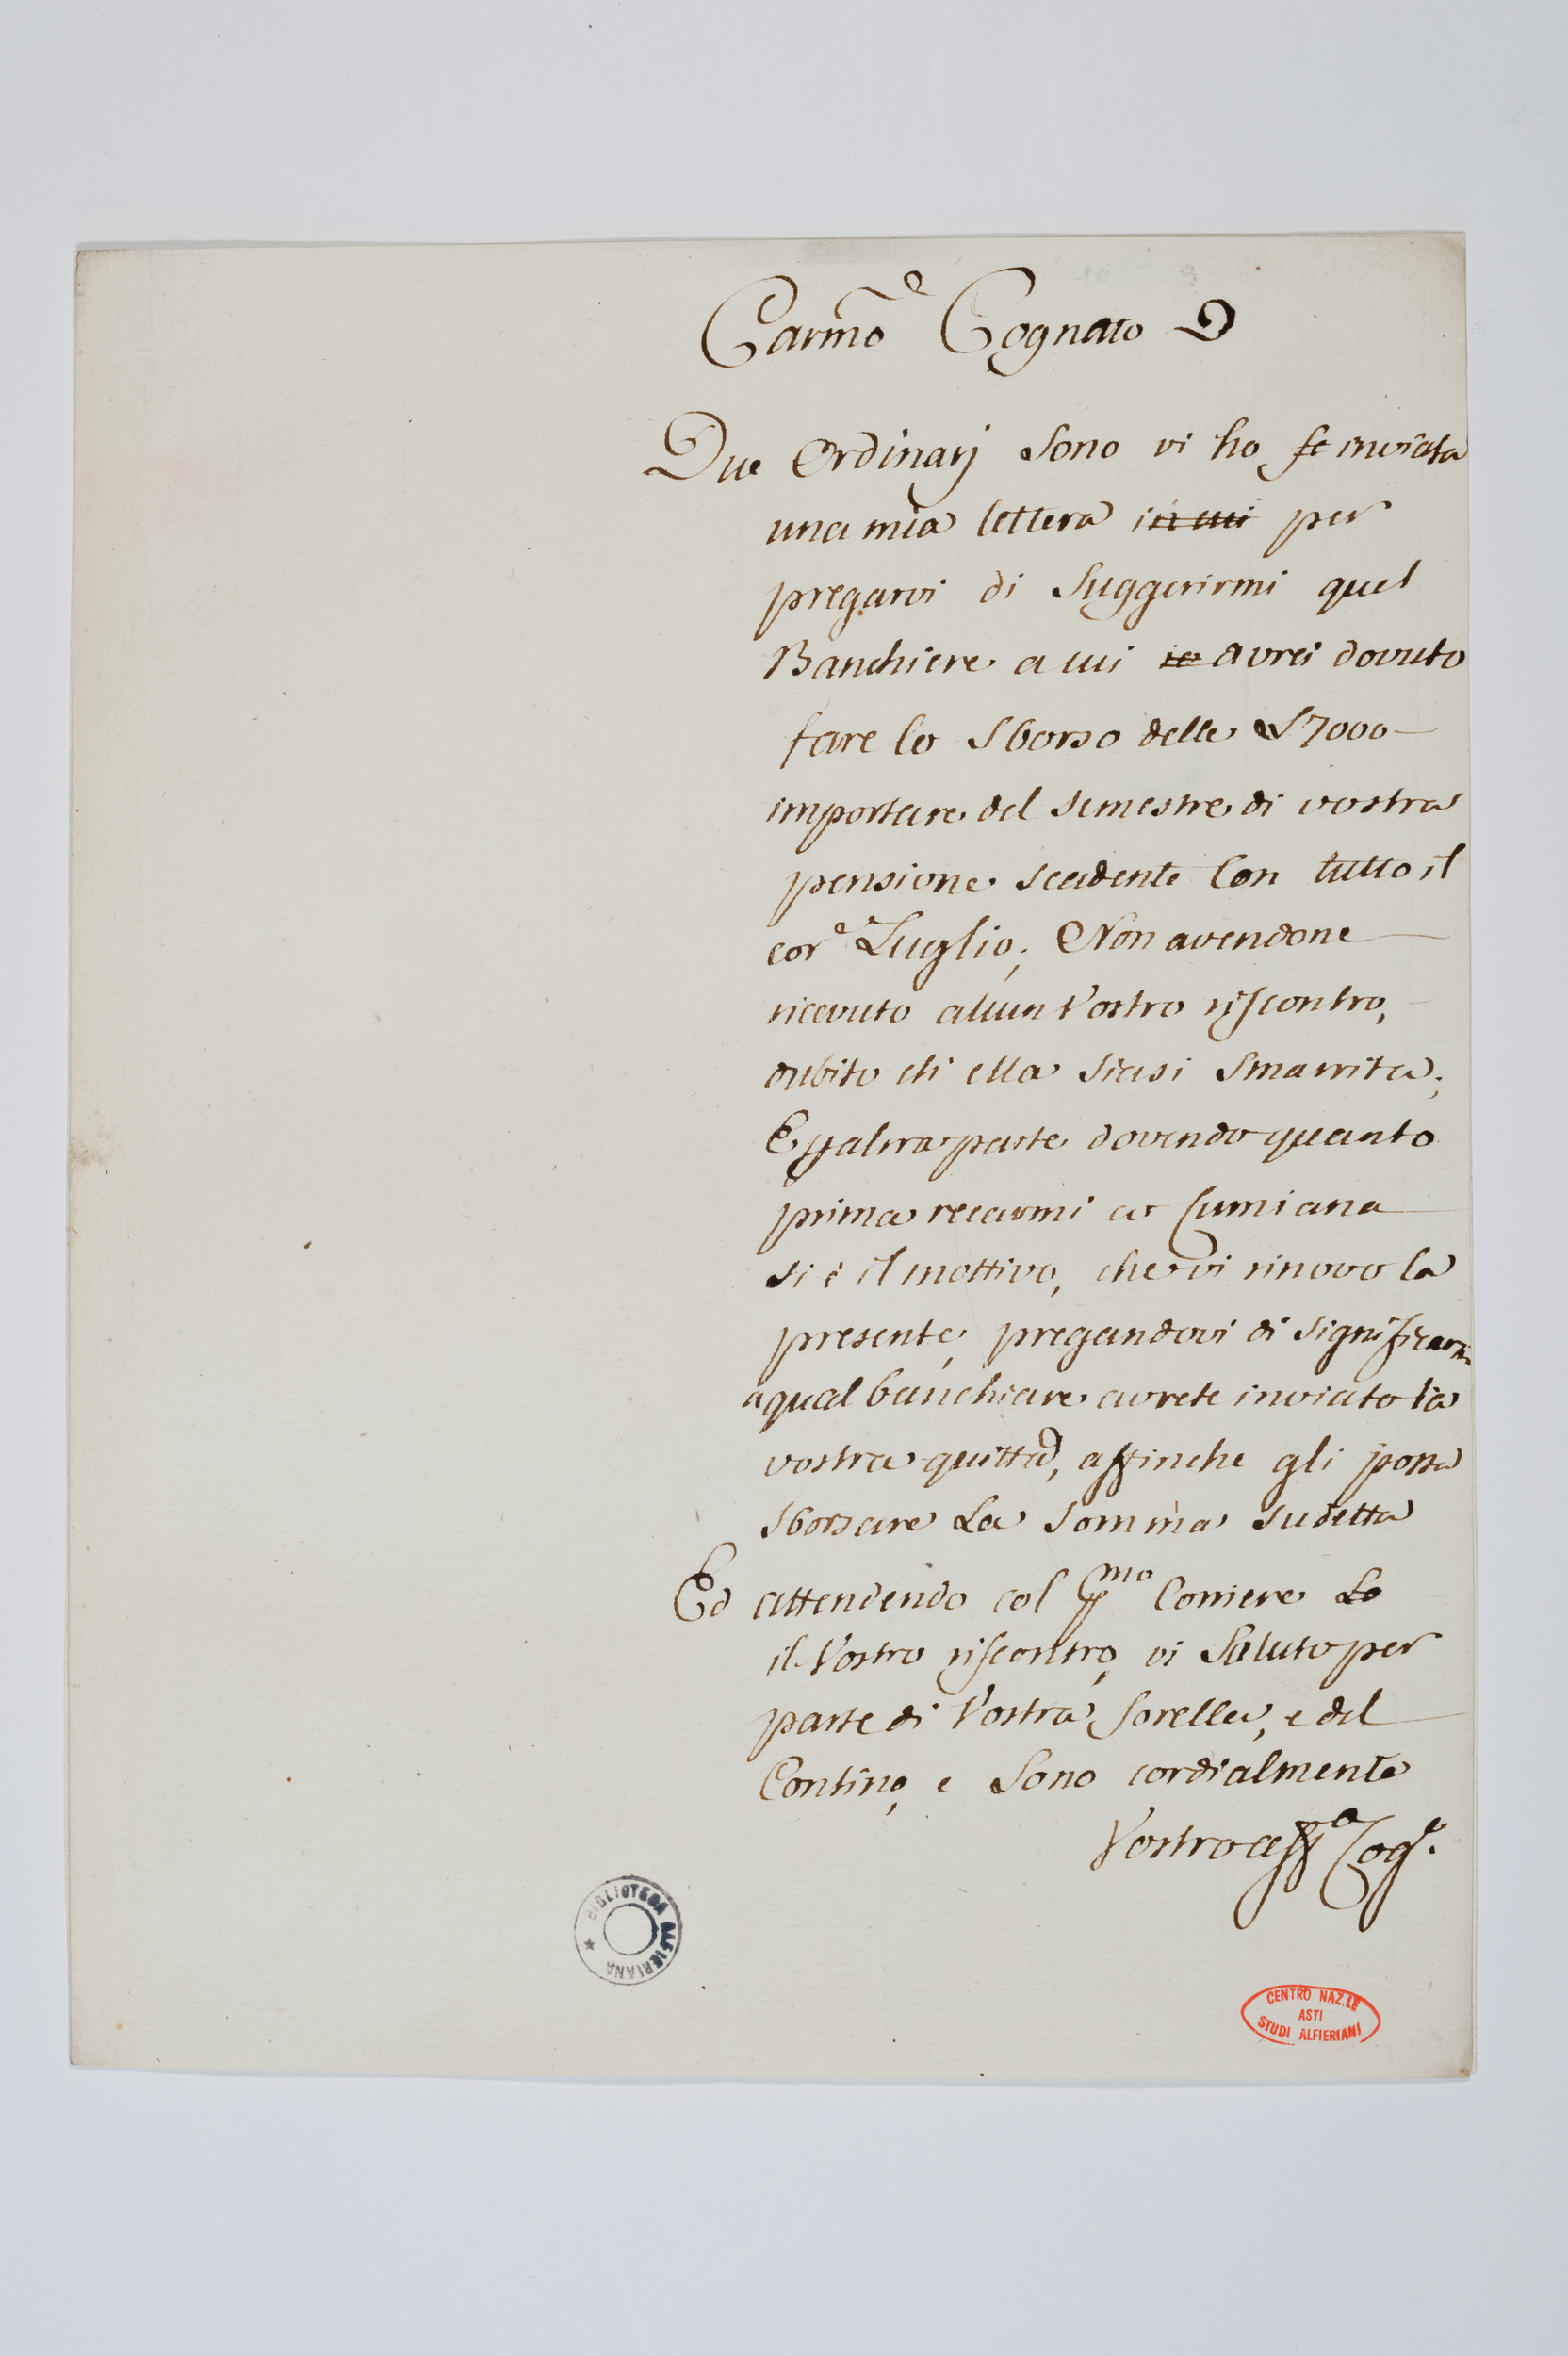 Carmo Cognato
Due Ordinarj sono vi ho fe inviata
una mia lettera in cui per
pregarvi di suggerirmi quel
Banchiere a cui io avrei dovuto
fare lo sborso delle L 7000
importare del semestre di vostra
pensione scadente con tutto il
core Luglio; Non avendone
ricevuto alcun Vostro riscontro,
dubito ch ella siasi smarrita;
E altra parte dovendo quanto
prima recarmi a Cumiana
si è il mottivo, che vi rinovo la
presente, pregandovi di significarmi
a qual banchiere avrete inviato la
vostra quitta, affinche gli possa
sborsare La somma sudetta
Ed attendendo col pmo Corriere Lo
il Vostro riscontro, vi saluto per
parte di Vostra Sorella, e del
Contino, e sono cordialmente
Vostro affo Cogo.
BIBLIOTECA ALFIERIANA
CENTRO NAZ.LE
ASTI
STUDI ALFIERIANI